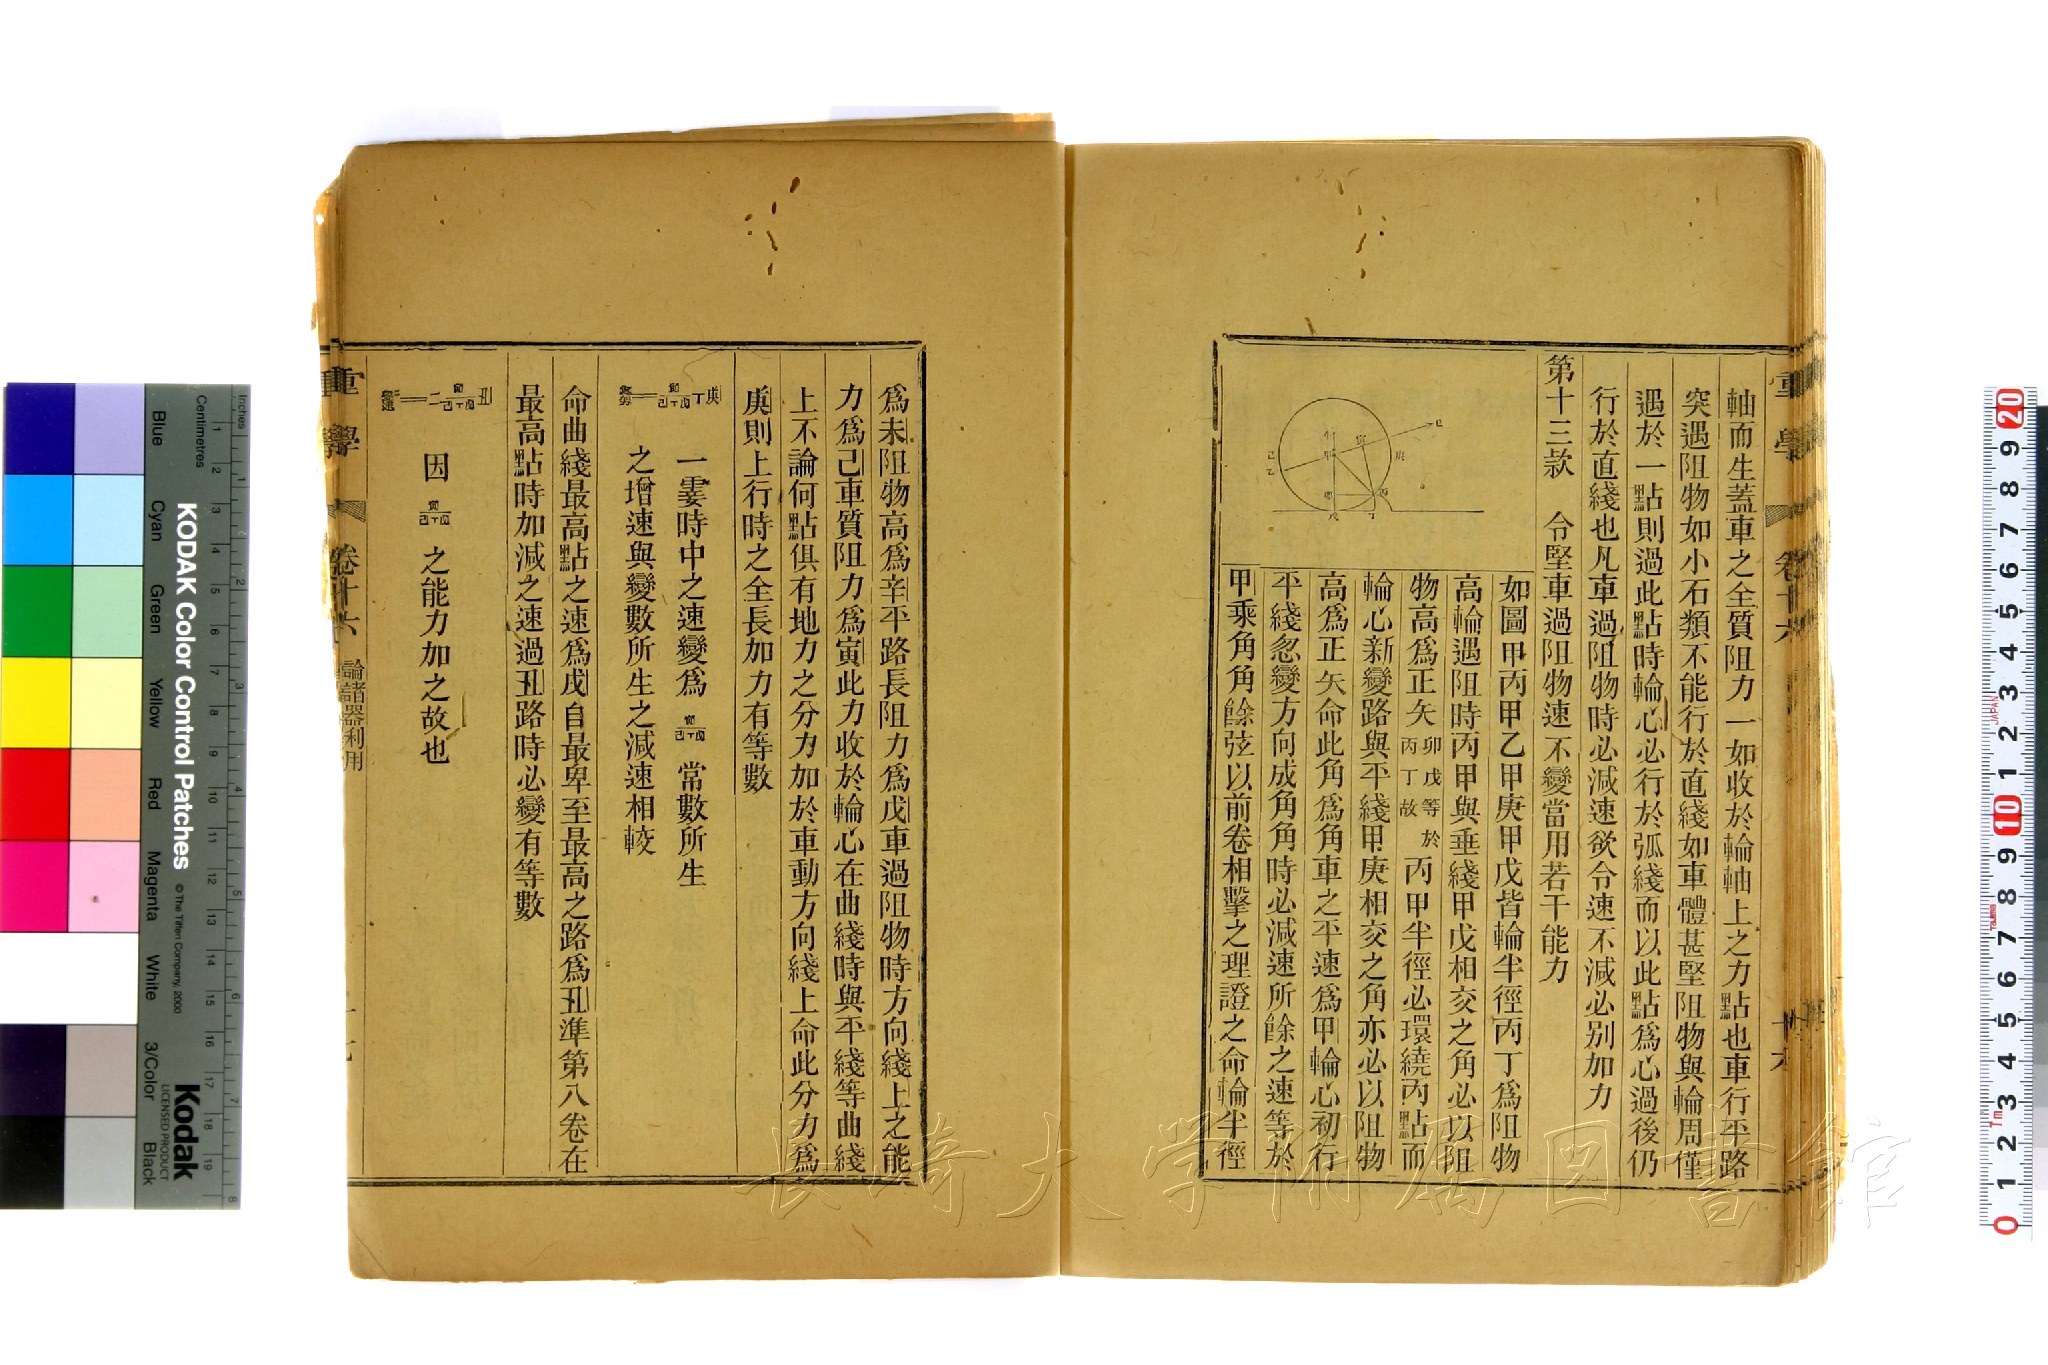 軸而生蓋車之全質阻力一如收於輪軸上之力點也車行平路
突遇阻物如小石類不能行於直綫如車體甚堅阻物與輪周僅
遇於一點則過此點時輪心必行於弧綫而以此點爲心過後仍
行於直綫也凡車過阻物時必減速欲令速不減必別加力
第十三款 令堅車過阻物速不變當用若干能力
如圖甲丙甲乙甲庚甲戊皆輪半徑丙丁爲阻物
高輪遇阻時丙甲與垂綫甲戊相交之角必以阻
物高爲正矢卯戊等於丙丁故丙甲半徑必環繞丙點而
輪心新變路與平綫甲庚相交之角亦必以阻物
高爲正矢命此角爲角車之平速爲甲輪心初行
平綫忽變方向成角角時必減速所餘之速等於
甲乘角角餘弦以前卷相擊之理證之命輪半徑
爲未阻物高爲辛平路長阻力爲戊車過阻物時方向綫上之能
力爲己車質阻力爲寅此力收於輪心在曲綫時與平綫等曲綫
上不論何點俱有地力之分力加於車動方向綫上命此分力爲
庚則上行時之全長加力有等數
一霎時中之速變爲 常數所生
之增速與變數所生之減速相較
命曲綫最高點之速爲戌自最卑至最高之路爲丑準第八卷在
最高點時加減之速過丑路時必變有等數
因 之能力加之故也
重學 卷十六 論諸器利用
長崎大学附属図書館
KODAK Color Control Patches
© The Tiffen Company, 2000
Kodak
LICENSED PRODUCT
Blue
Cyan
Green
Yellow
Red
Magenta
White
3/Color
Black
Inches
Centimetres